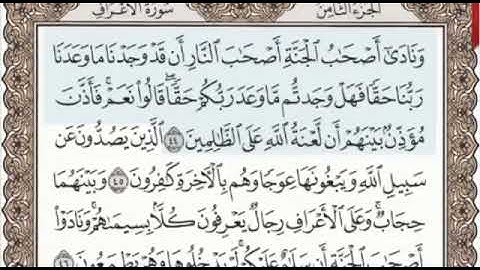 سورة الأعراف الجزء الثامن
وَنَادَىٰٓ أَصْحَٰبُ ٱلْجَنَّةِ أَصْحَٰبَ ٱلنَّارِ أَن قَدْ وَجَدْنَا مَا وَعَدَنَا
رَبُّنَا حَقًّا فَهَلْ وَجَدتُّم مَّا وَعَدَ رَبُّكُمْ حَقًّا ۖ قَالُوا۟ نَعَمْ ۚ فَأَذَّنَ
مُؤَذِّنٌۢ بَيْنَهُمْ أَن لَّعْنَةُ ٱللَّهِ عَلَى ٱلظَّٰلِمِينَ ٤٤ ٱلَّذِينَ يَصُدُّونَ عَن
سَبِيلِ ٱللَّهِ وَيَبْغُونَهَا عِوَجًا وَهُم بِٱلْءَاخِرَةِ كَٰفِرُونَ ٤٥ وَبَيْنَهُمَا
حِجَابٌ ۚ وَعَلَى ٱلْأَعْرَافِ رِجَالٌ يَعْرِفُونَ كُلًّۢا بِسِيمَىٰهُمْ ۚ وَنَادَوْا۟
أَصْحَٰبَ ٱلْجَنَّةِ أَن سَلَٰمٌ عَلَيْكُمْ ۚ لَمْ يَدْخُلُوهَا وَهُمْ يَطْمَعُونَ ٤٦